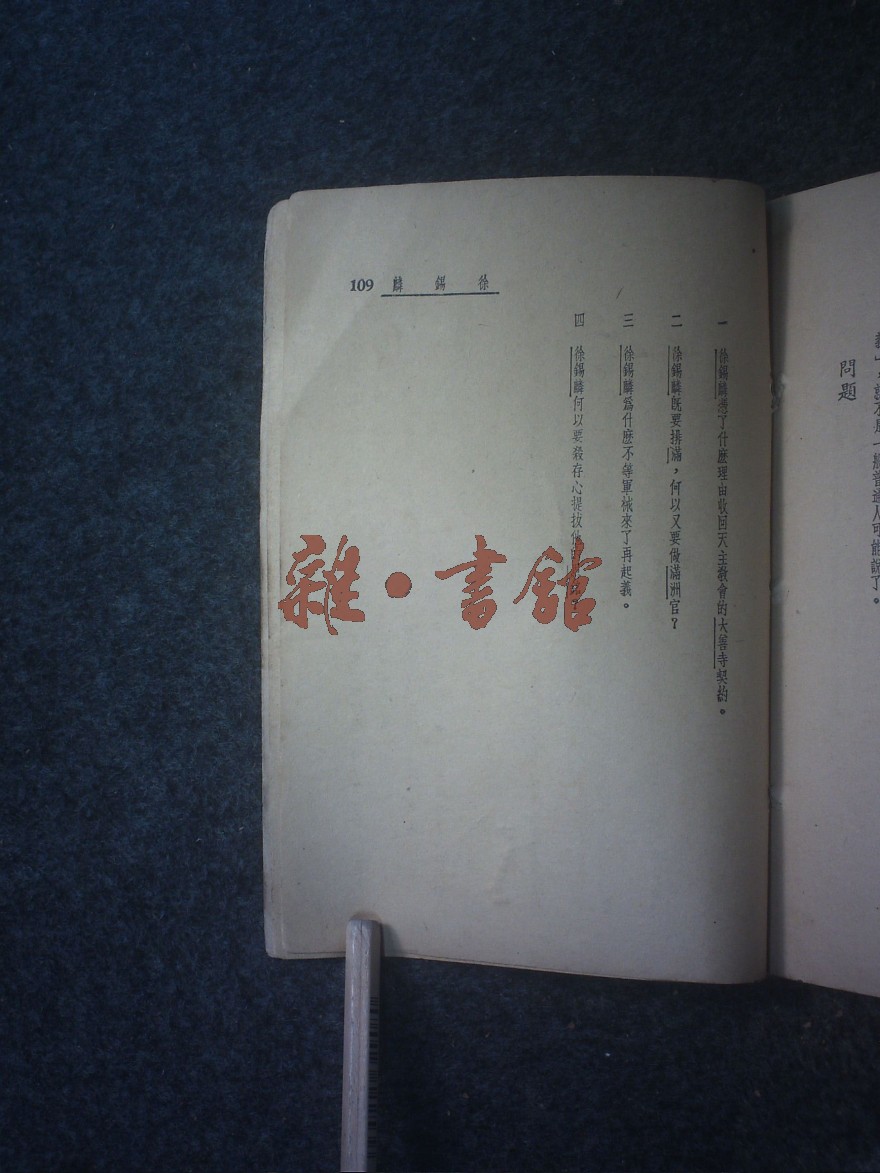 問題
一 徐錫麟憑了什麽理由收回天主教會的大善寺契約。
二 徐錫麟既要排滿，何以又要做滿洲官？
三 徐錫麟爲什麽不等軍械來了再起義。
四 徐錫麟何以要殺存心提拔他的
徐錫麟 109
雜·書館